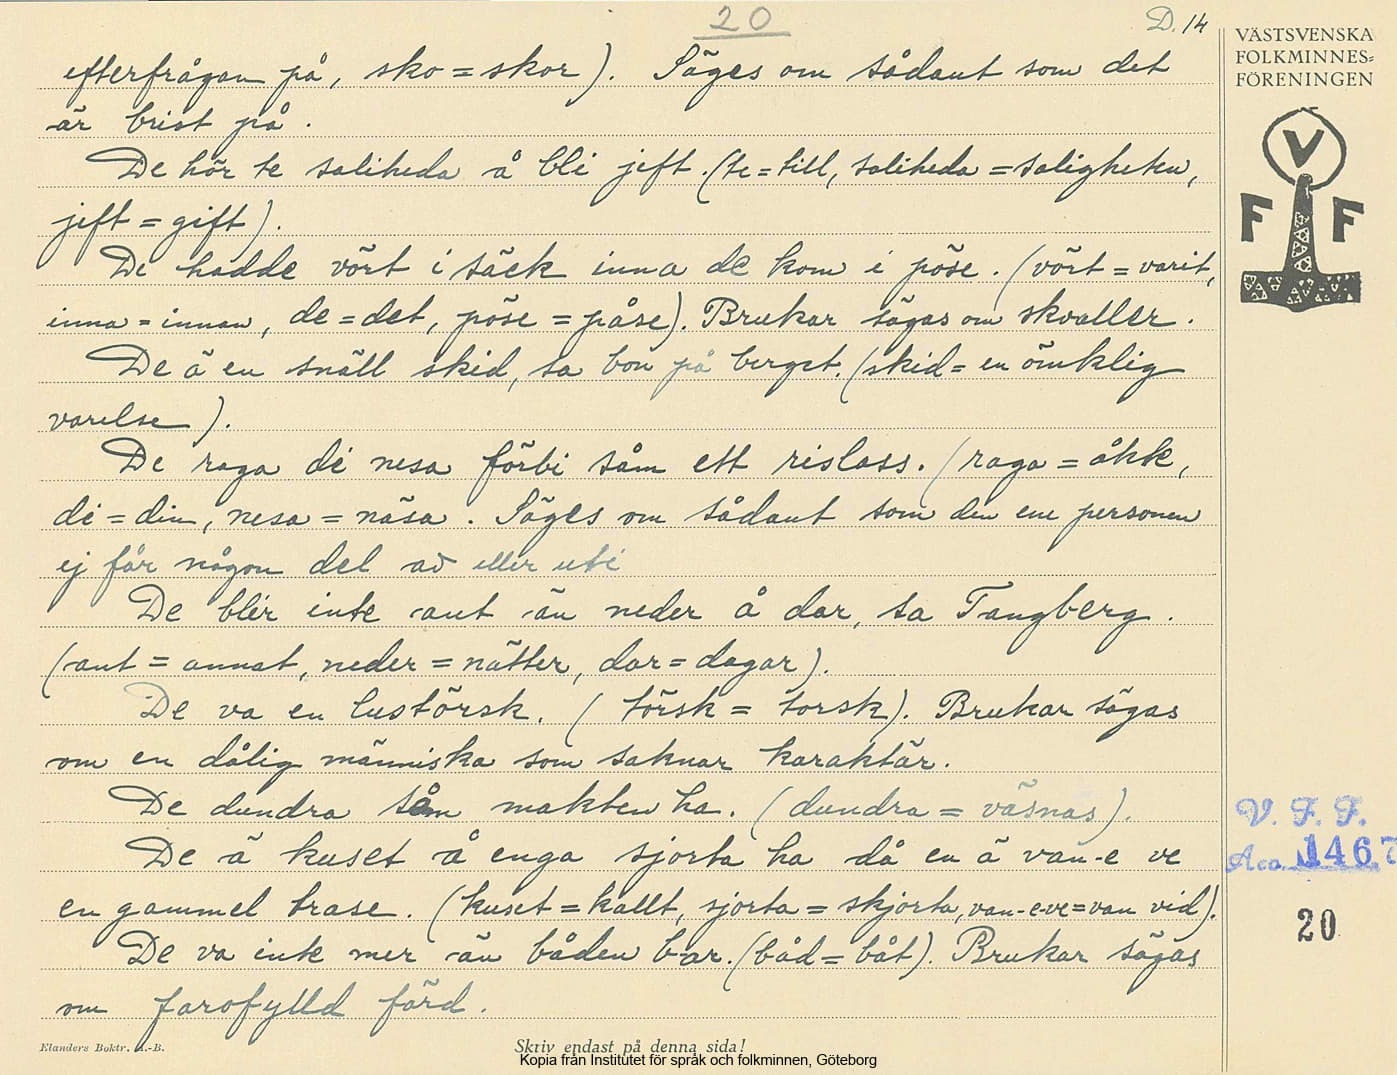 20
D. 14
efterfrågan på, sko = skor). Säges om sådant som det
är brist på.
De hör te saliheda å bli jeft. (te = till, saliheda = saligheten,
jeft = gift).
De hadde vört i säck inna de kom i påse. (vört = varit,
inna = innan, de = det, pöse = påse). Brukar sägas om skvaller.
De ä en snäll skid, sa bon på berget. (skid = en ömklig
varelse).
De raga di nesa förbi såm ett rislass. (raga = åkk,
di = din, nesa = näsa. Säges om sådant som den ene personen
ej får någon del av eller uti
De blir inte ant än neder å dar, sa Tangberg.
(ant = annat, neder = nätter, dar = dagar).
De va en lustörsk. (törsk = torsk). Brukar sägas
om en dålig människa som saknar karaktär.
De dundra såm makten ha. (dundra = väsnas).
De ä kuset å enga sjorta ha då en ä van-e ve
en gammel trase. (kuset = kallt, sjorta = skjorta, van-e-ve = van vid).
De va inte mer än båden bar. (båd = båt). Brukar sägas
om farofylld färd.
VÄSTSVENSKA
FOLKMINNES=
FÖRENINGEN
V
F F
V. F. F.
Acc. N 1467
20
Elanders Boktr. A.-B.
Skriv endast på denna sida!
Kopia från Institutet för språk och folkminnen, Göteborg